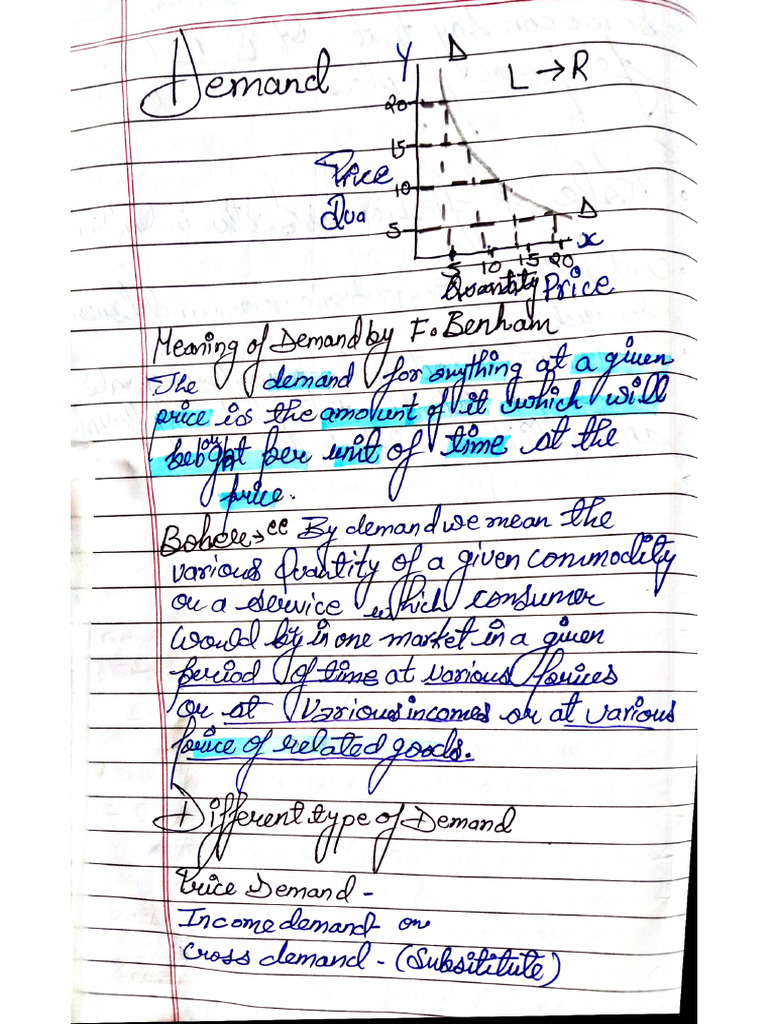 Demand
Y D
L → R
20
15
Price 10
Qua
5
D
x
5 10 15 20
Quantity Price
Meaning of Demand by F. Benham
The demand for anything at a given
price is the amount of it which will
be bought per unit of time at the
price.
Bober → “ By demand we mean the
various Quantity of a given commodity
or a service which consumer
would by in one market in a given
period of time at various prices
or at various incomes or at various
price of related goods.
Different type of Demand
Price Demand -
Income demand-
Cross demand - (Subsititute)